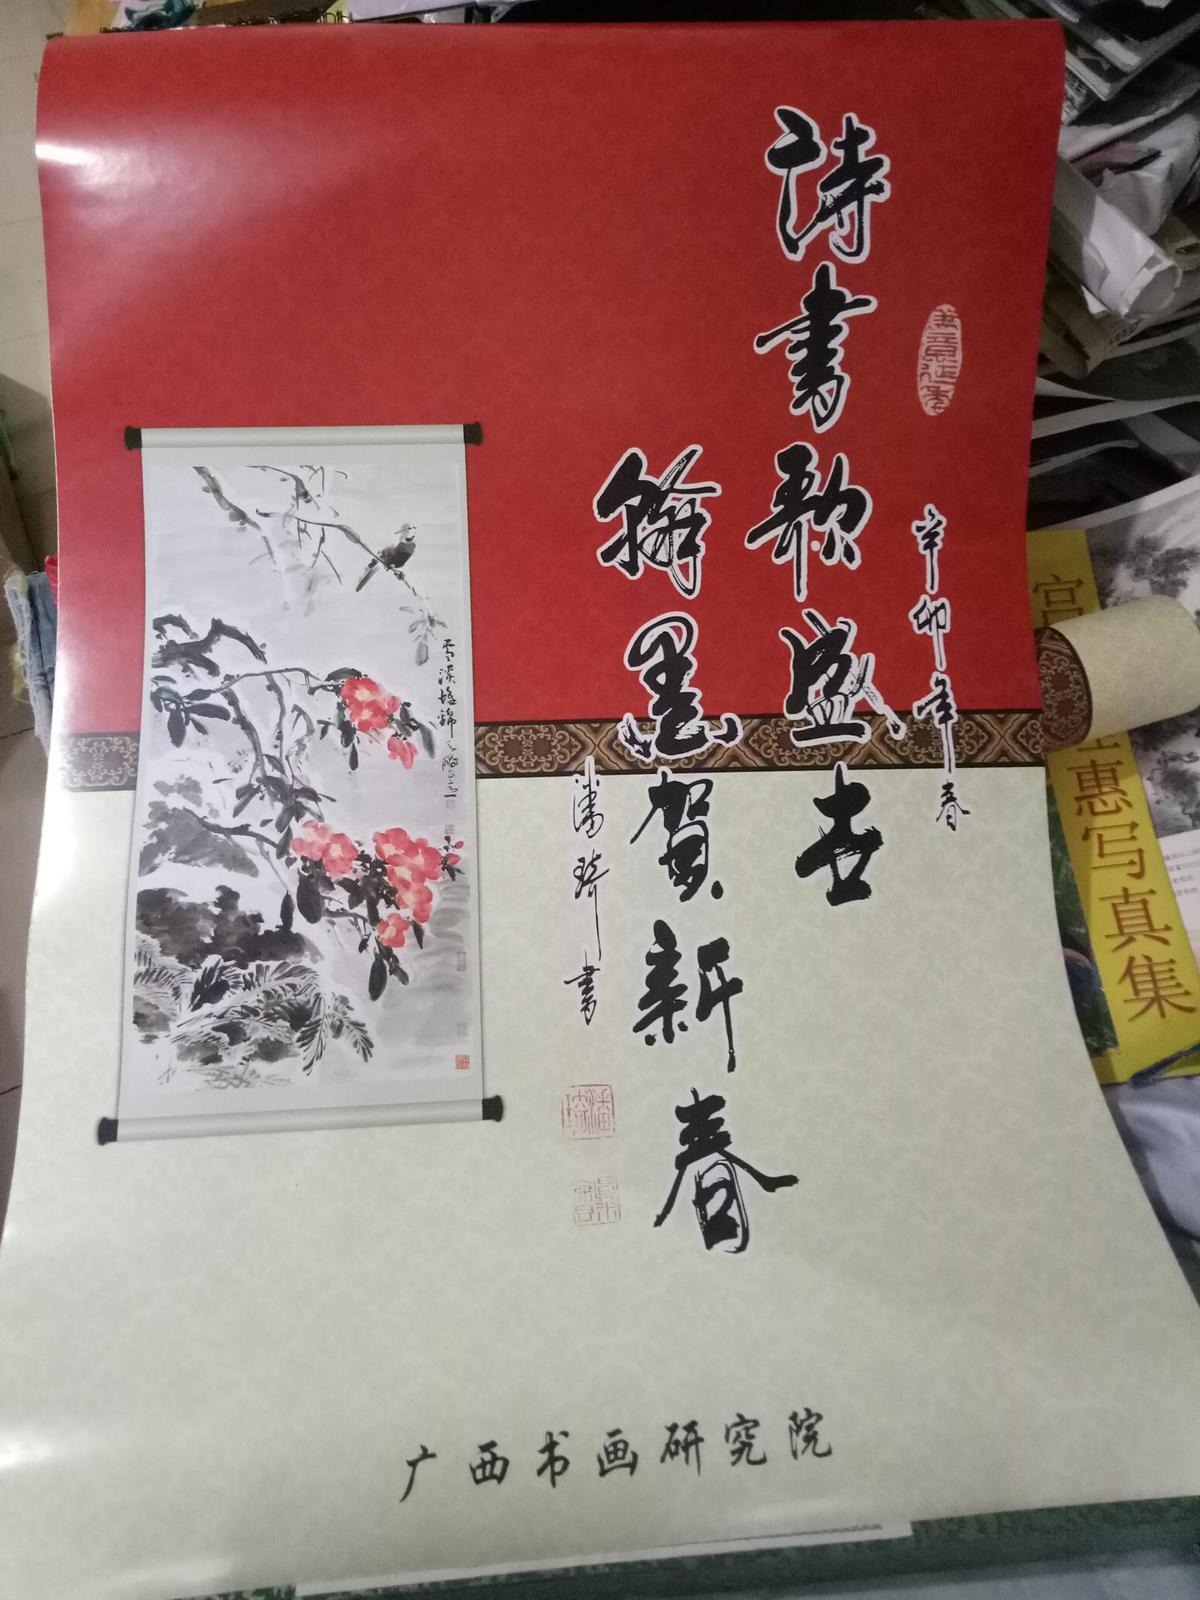 辛卯年春
詩書歌盛世
翰墨賀新春
潘琦書
潘琦
广西书画研究院
惠写真集
宫